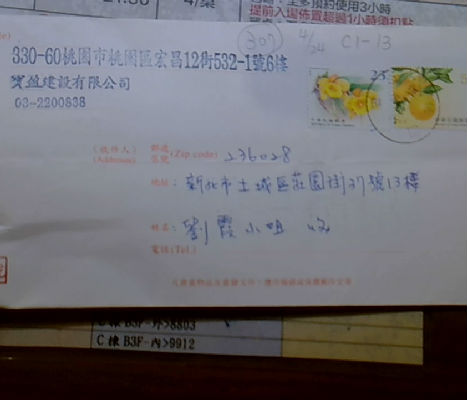 4/案
至多預約使用3小時
提前入場佈置超過1小時須扣點
307 4/24 C1-13
330-60桃園市桃園區宏昌12街532-1號6樓
寶盈建設有限公司
03-2200838
(收件人)
(Addressee)
郵遞區號(Zip code) 236028
地址: 新北市土城區莊園街37號13樓
姓名: 劉霞小姐 收
電話(Tel.)
C棟 B3F-外>8803
C棟 B3F-內>9912